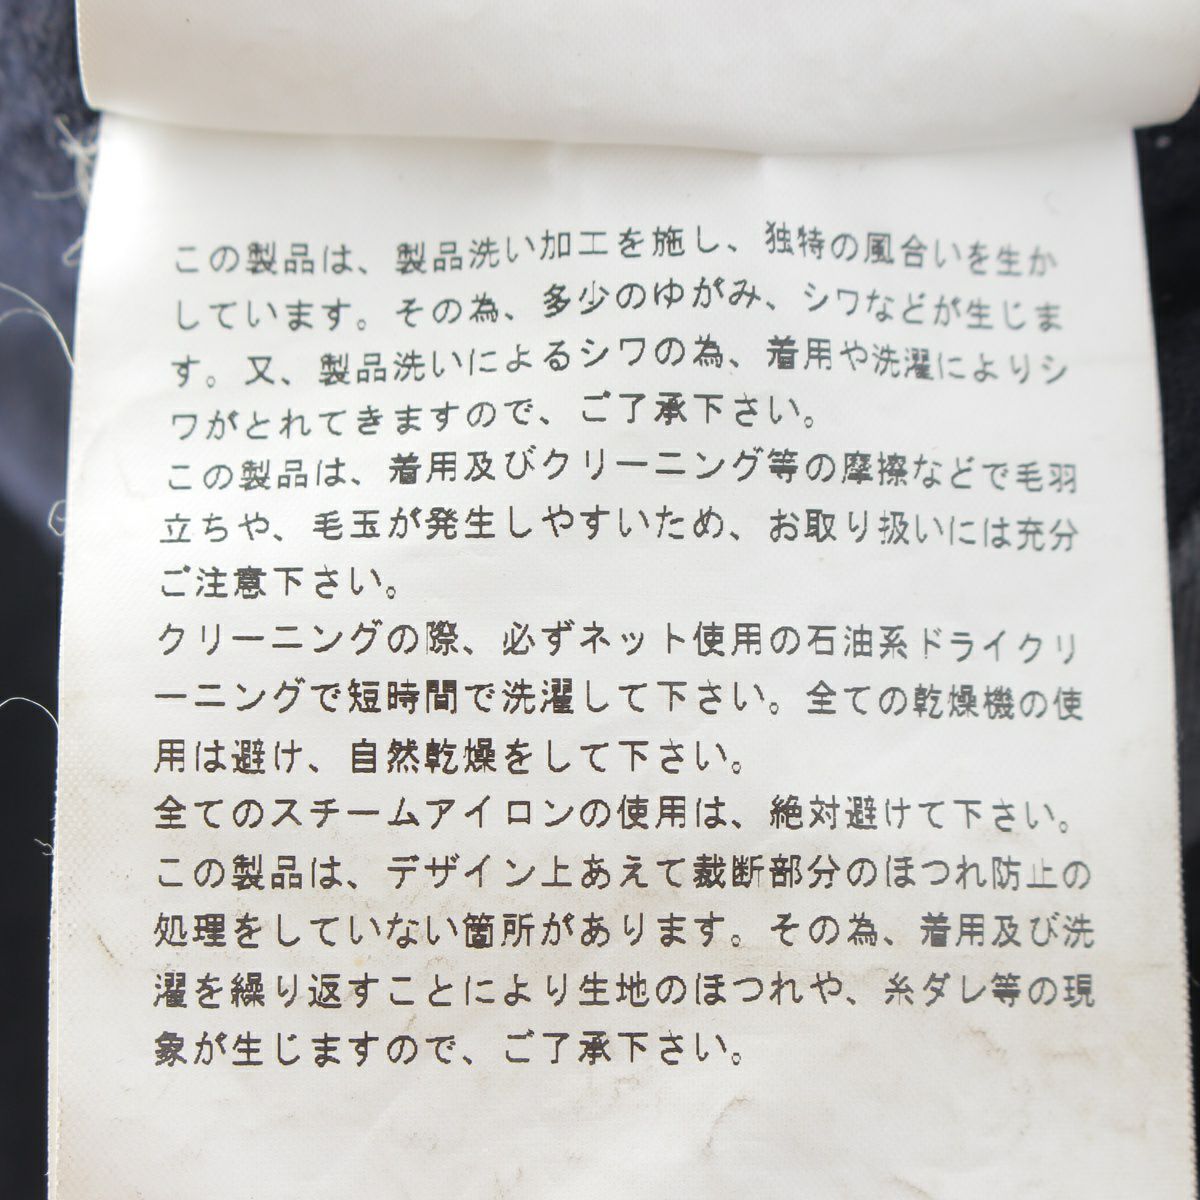 この製品は、製品洗い加工を施し、独特の風合いを生か
しています。その為、多少のゆがみ、シワなどが生じま
す。又、製品洗いによるシワの為、着用や洗濯によりシ
ワがとれてきますので、ご了承下さい。
この製品は、着用及びクリーニング等の摩擦などで毛羽
立ちや、毛玉が発生しやすいため、お取り扱いには充分
ご注意下さい。
クリーニングの際、必ずネット使用の石油系ドライクリ
ーニングで短時間で洗濯して下さい。全ての乾燥機の使
用は避け、自然乾燥をして下さい。
全てのスチームアイロンの使用は、絶対避けて下さい。
この製品は、デザイン上あえて裁断部分のほつれ防止の
処理をしていない箇所があります。その為、着用及び洗
濯を繰り返すことにより生地のほつれや、糸ダレ等の現
象が生じますので、ご了承下さい。